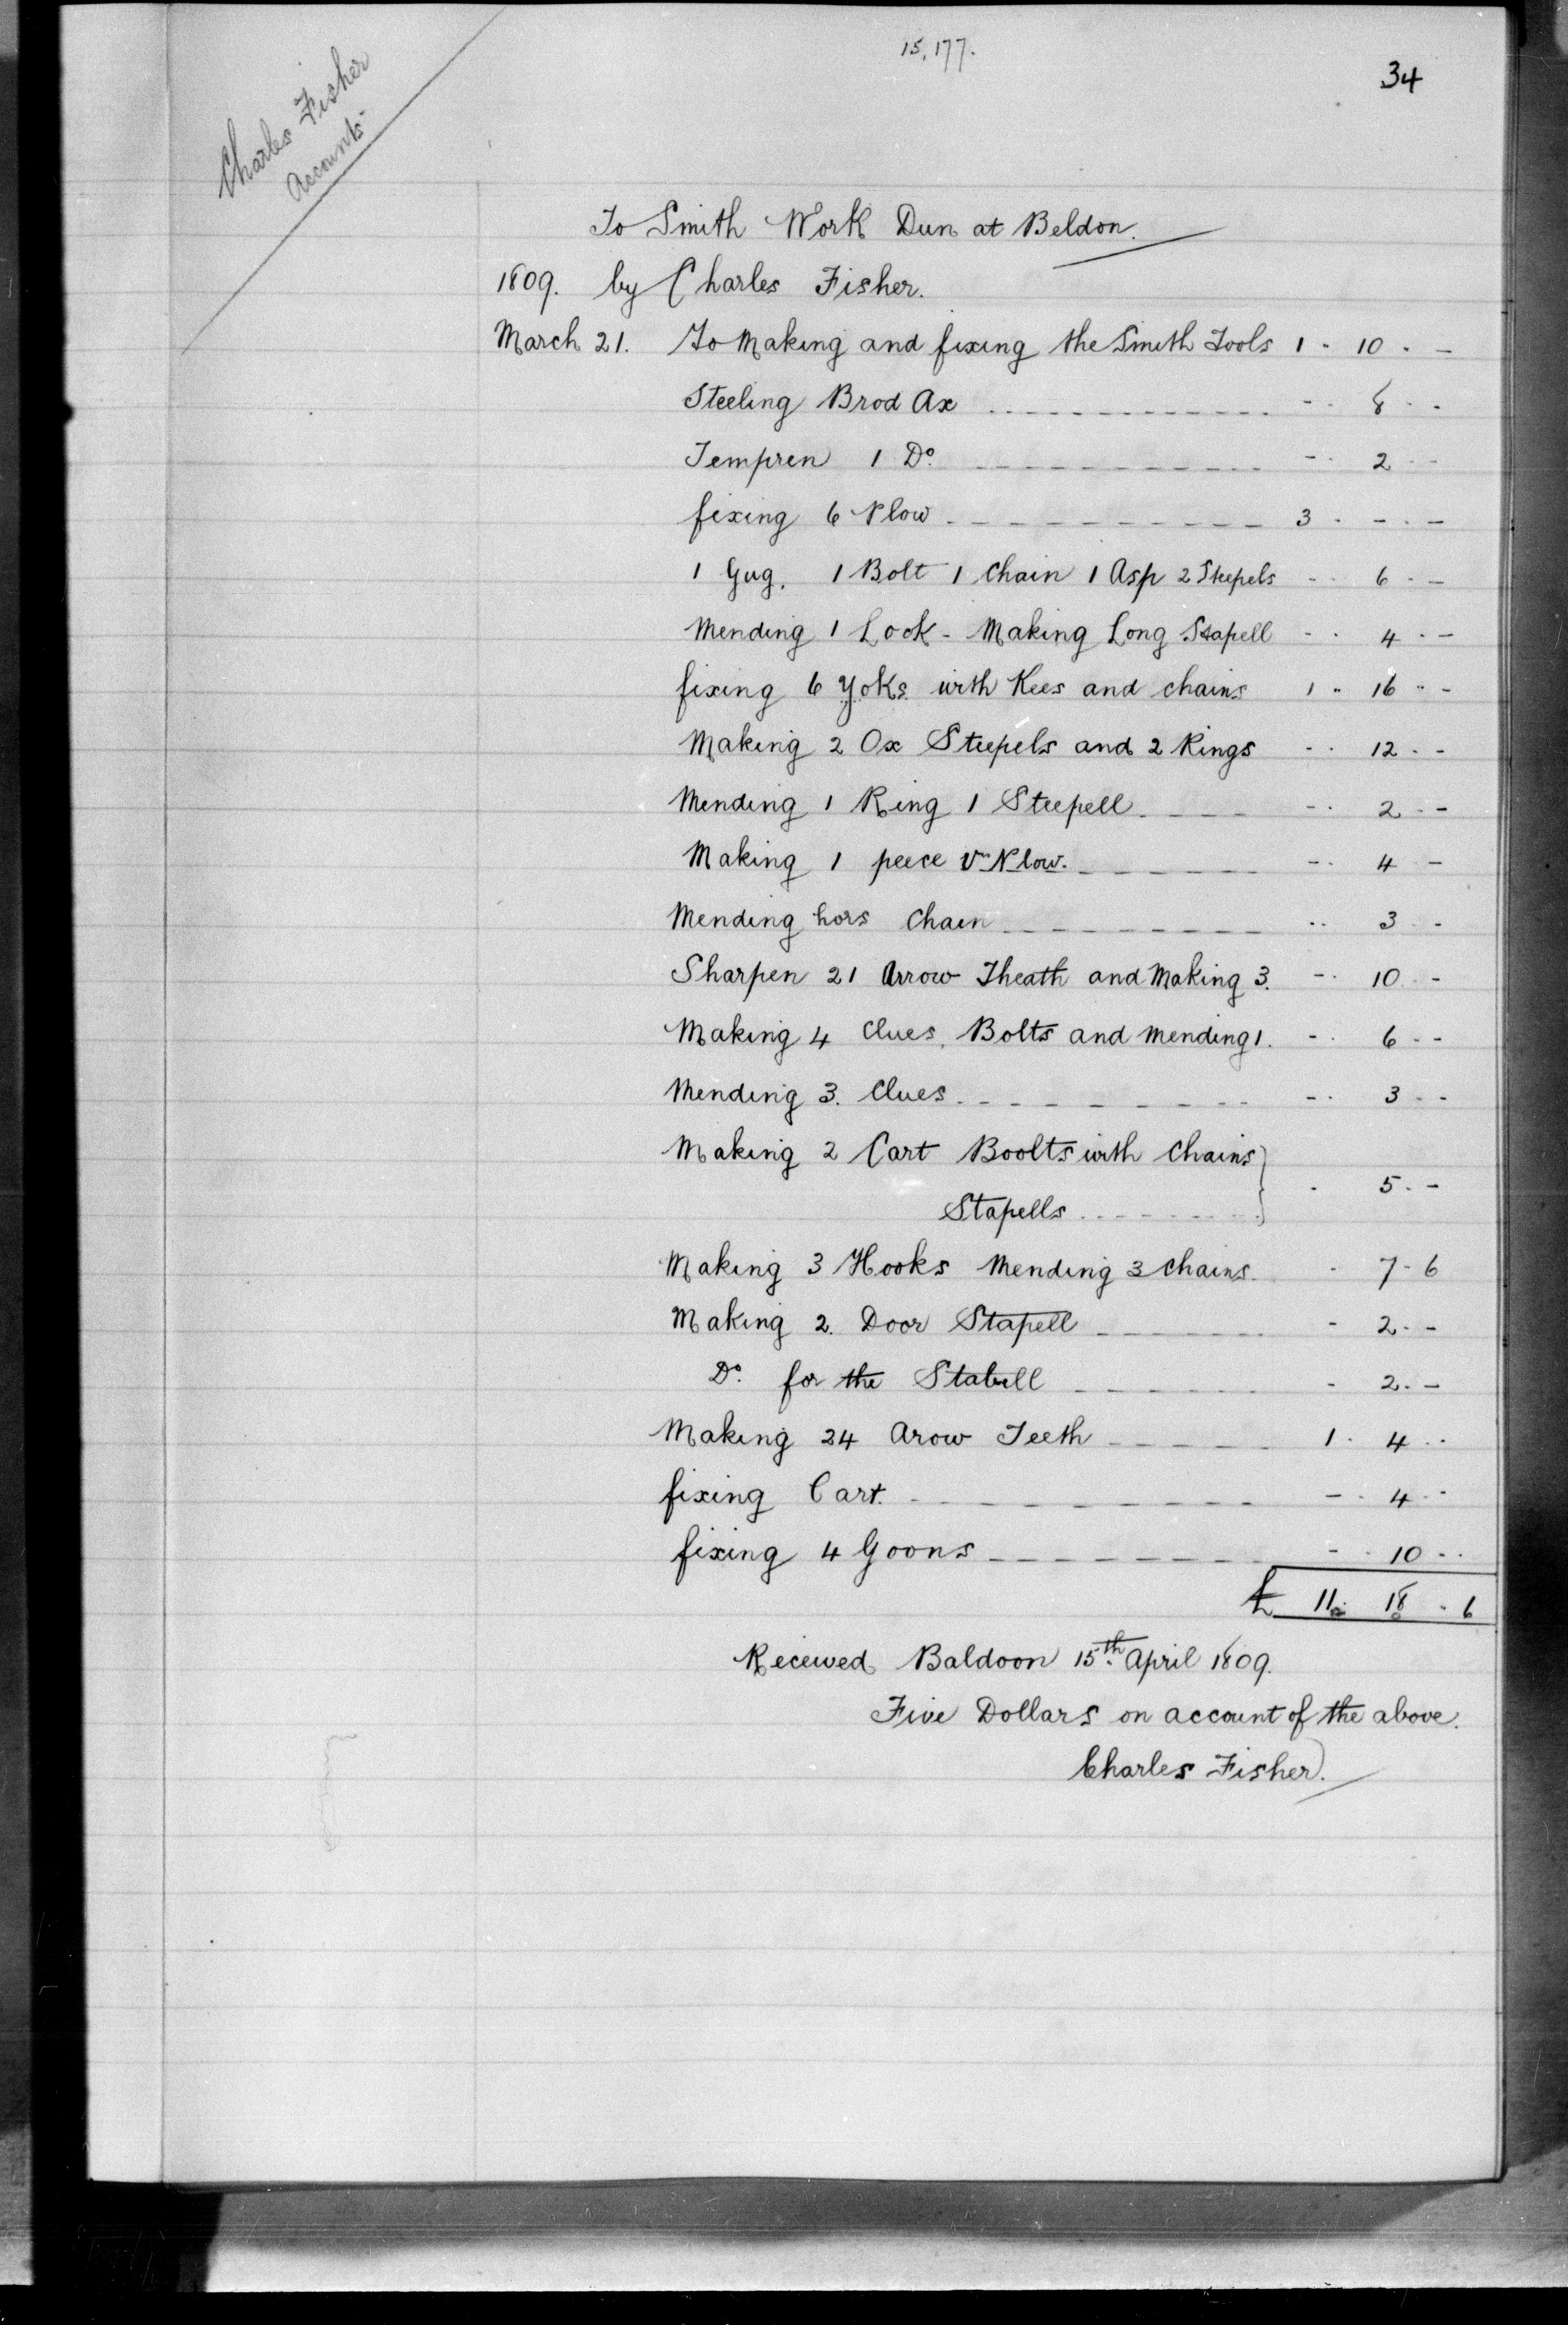 15,177.
34
Charles Fisher
Accounts
To Smith Work Dun at Beldon.
1809. by Charles Fisher.
March 21. To Making and fixing the Smith Tools 1 - 10 - -
Steeling Brod Ax - - 8 - -
Tempren 1 Do. - - 2 - -
fixing 6 Plow 3 - - - -
1 Gug. 1 Bolt 1 Chain 1 Asp 2 Steepels - - 6 - -
Mending 1 Lock - Making Long Stapell - - 4 - -
fixing 6 Yoks with Kees and chains 1 - 16 - -
Making 2 Ox Steepels and 2 Rings - - 12 - -
Mending 1 Ring 1 Steepell - - 2 - -
Making 1 peece Plow. - - 4 -
Mending hors Chain - - 3 - -
Sharpen 21 Arrow Theath and Making 3. - - 10 - -
Making 4 Clues, Bolts and Mending 1. - - 6 - -
Mending 3. Clues - - 3 - -
Making 2 Cart Boolts with Chains
Stapells - 5 - -
Making 3 Hooks Mending 3 chains. - 7 - 6
Making 2. Door Stapell - 2 - -
Do. for the Stabell - 2 - -
Making 24 Arow Teeth 1 - 4 - -
fixing Cart. - - 4 - -
fixing 4 Goons - - 10 - -
£ 11 - 18 - 6
Received Baldoon 15th April 1809.
Five Dollars on account of the above.
Charles Fisher.